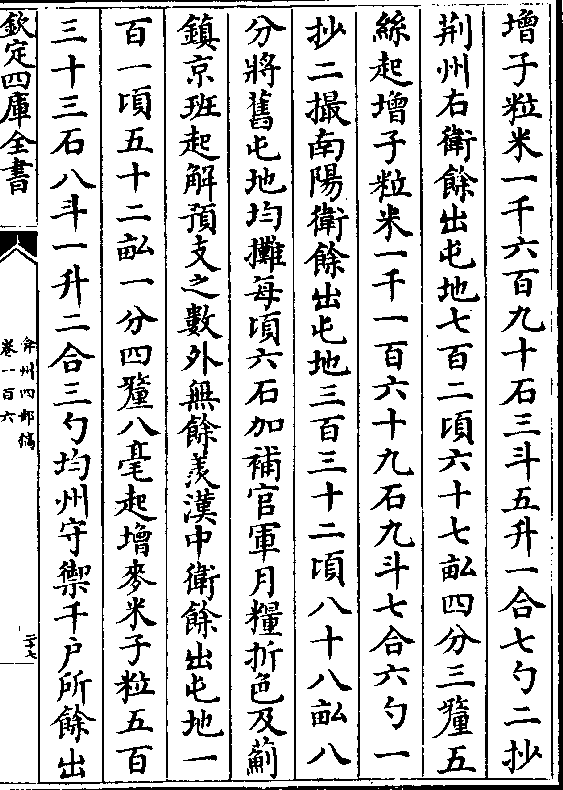 增子粒米一千六百九十石三斗五升一合七勺二抄
荆州右衛餘出屯地七百二頃六十七畝四分三釐五
絲起增子粒米一千一百六十九石九斗七合六勺一
抄二撮南陽衛餘出屯地三百三十二頃八十八畝八
分將舊屯地均攤每頃六石加補官軍月糧折色及薊
鎮京班起解預支之數外無餘羨漢中衛餘出屯地一
百一頃五十二畝一分四釐八毫起增麥米子粒五百
三十三石八斗一升二合三勺均州守禦千户所餘出
欽定四庫全書
弇州四部稿
卷一百六
二十七